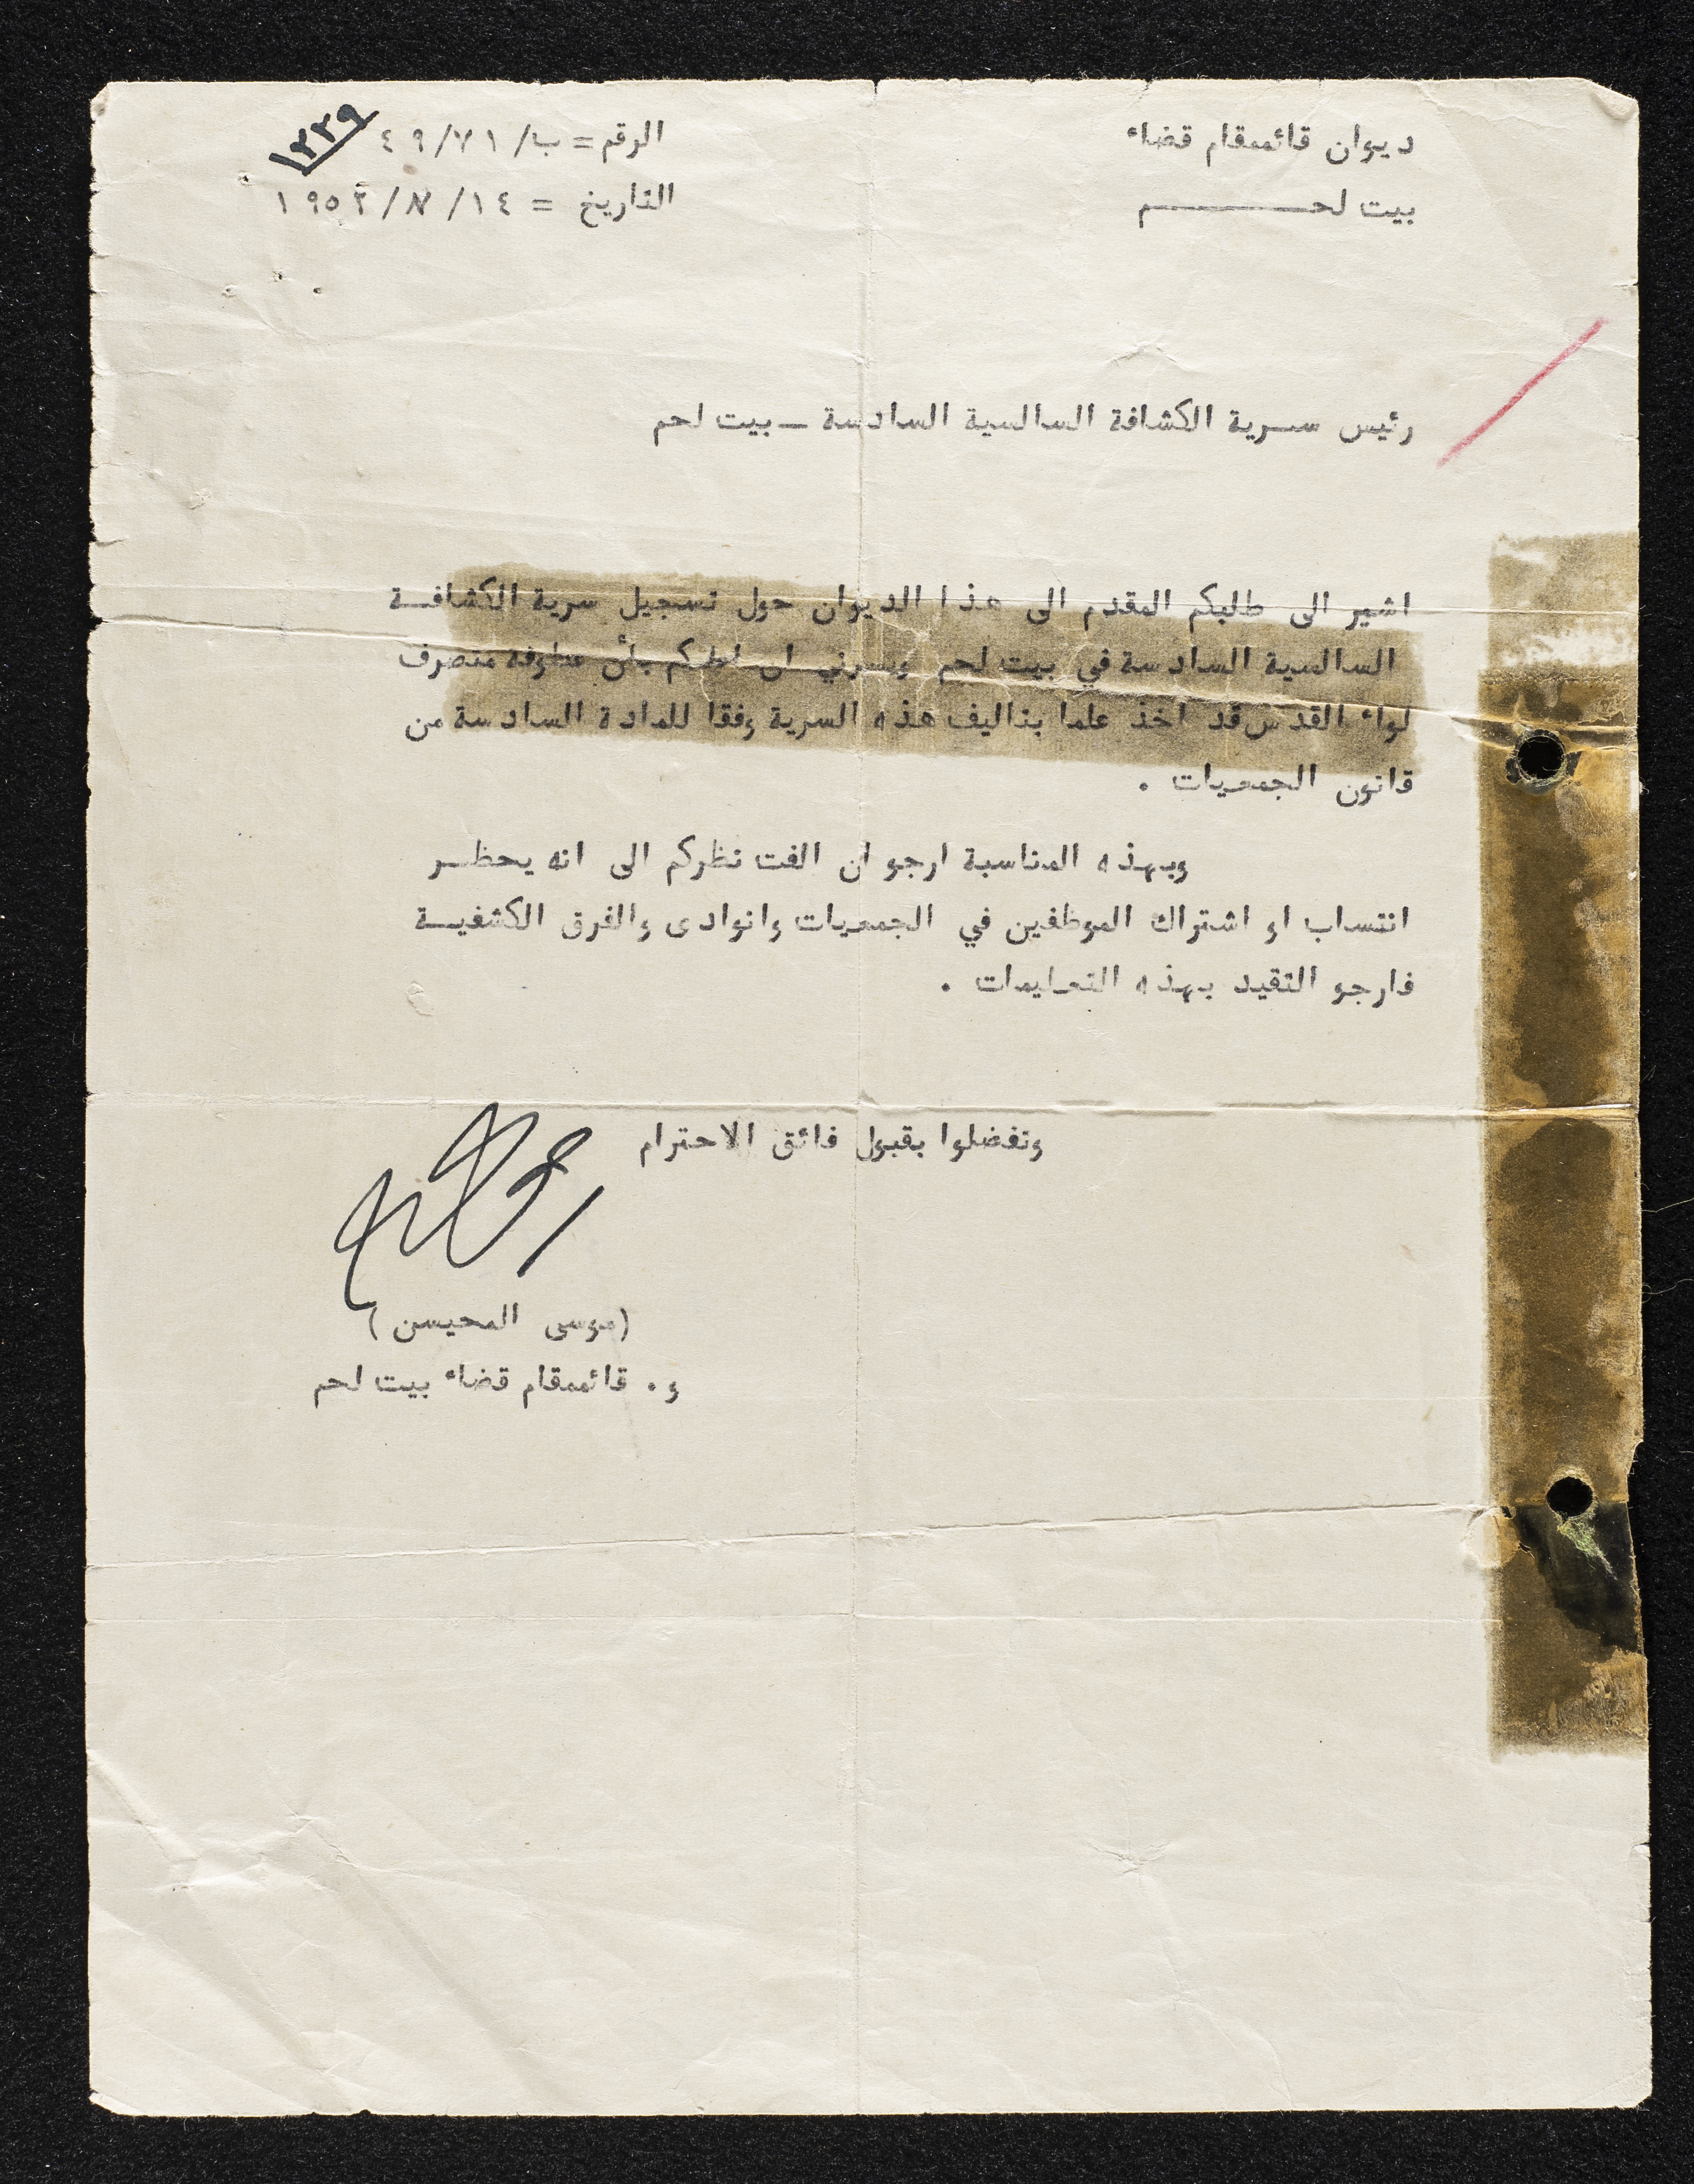 ديوان قائممقام قضاء
بيت لحـــــــم
الرقم = ب/ ٤٩/٧١ ١٢٢٩
التاريخ = ١٩٥٢/٧/١٤
رئيس سرية الكشافة السالسية السادسة ـ بيت لحم
اشير الى طلبكم المقدم الى هذا الديوان حول تسجيل سرية الكشافـة
السالسية السادسة في بيت لحم ويسرني ان اعلمكم بأن عطوفة متصرف
لواء القدس قد اخذ علما بتاليف هذه السرية وفقا للمادة السادسة من
قانون الجمعيات .
وبهذه المناسبة ارجو ان الفت نظركم الى انه يحظـر
انتساب او اشتراك الموظفين في الجمعيات وانوادى والفرق الكشفيـة
فارجو التقيد بهذه التعليمات .
وتفضلوا بقبول فائق الاحترام
(موسى المحيسن )
و . قائممقام قضاء بيت لحم